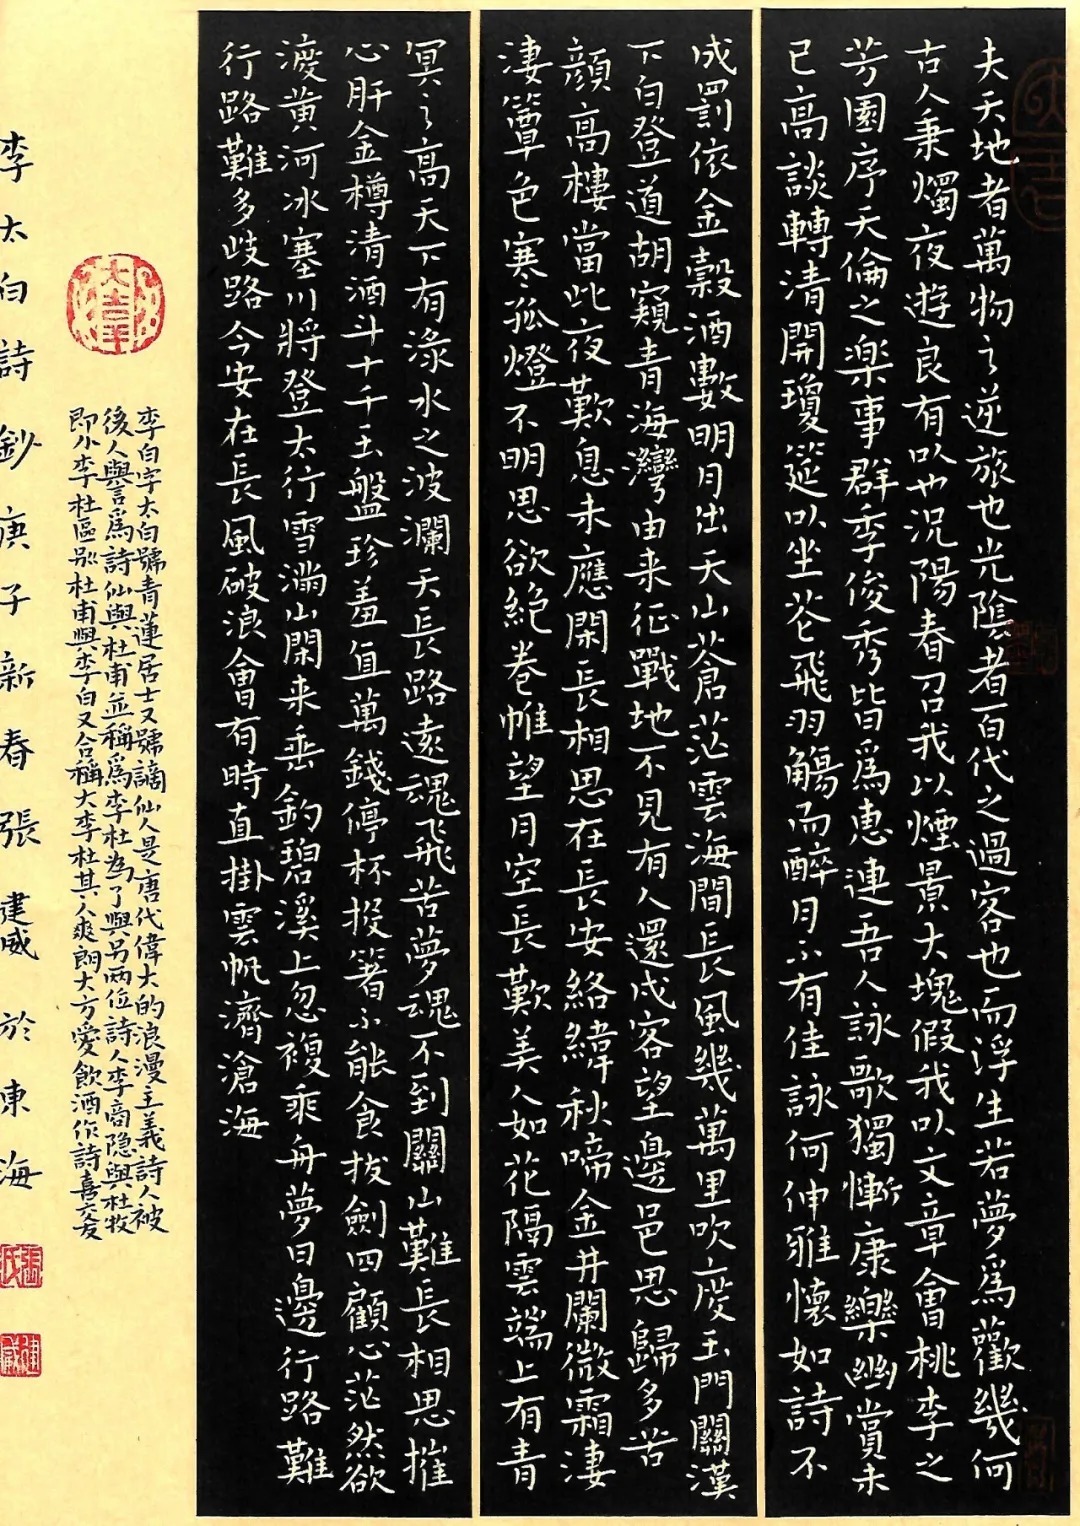 夫天地者萬物之逆旅也光陰者百代之過客也而浮生若夢爲歡幾何
古人秉燭夜遊良有以也況陽春召我以煙景大塊假我以文章會桃李之
芳園序天倫之樂事群季俊秀皆爲惠連吾人詠歌獨慚康樂幽賞未
已高談轉清開瓊筵以坐花飛羽觴而醉月不有佳詠何伸雅懷如詩不
成罰依金穀酒數明月出天山蒼茫雲海間長風幾萬里吹度玉門關漢
下白登道胡窺青海灣由来征戰地不見有人還戍客望邊邑思歸多苦
顔高樓當此夜歎息未應閑長相思在長安絡緯秋啼金井闌微霜淒
淒簟色寒孤燈不明思欲絶卷帷望月空長歎美人如花隔雲端上有青
冥之高天下有淥水之波瀾天長路遠魂飛苦夢魂不到關山難長相思摧
心肝金樽清酒斗十千玉盤珍羞值萬錢停杯投箸不能食拔劍四顧心茫然欲
渡黄河冰塞川將登太行雪滿山閑来垂釣碧溪上忽複乘舟夢日邊行路難
行路難多歧路今安在長風破浪會有時直掛雲帆濟滄海
李白字太白號青蓮居士又號謫仙人是唐代偉大的浪漫主義詩人被
後人與言爲詩仙與杜甫並稱爲李杜為了與另兩位詩人李商隐與杜牧
即小李杜區别杜甫與李白又合稱大李杜其人爽朗大方愛飲酒作詩喜交友
李太白詩鈔庚子新春張建威於東海